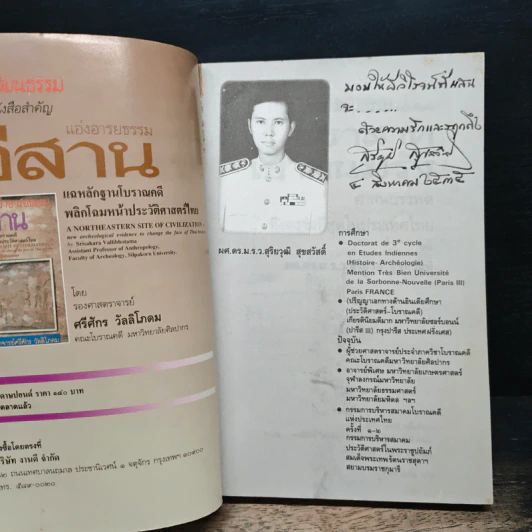 ปนธรรม
งสือสำคัญ
แอ่งอารยธรรม
อีสาน
แฉหลักฐานโบราณคดี
พลิกโฉมหน้าประวัติศาสตร์ไทย
A NORTHEASTERN SITE OF CIVILIZATION
new archeological evidence to change the face of Thai
by Srisakara Vallibhotama
Assistant Professor of Anthropology,
Faculty of Archeology, Silpakorn University.
โดย
รองศาสตราจารย์
ศรีศักร วัลลิโภดม
คณะโบราณคดี มหาวิทยาลัยศิลปากร
ราคา ๑๘๐ บาท
ตลาดแล้ว
ซื้อโดยตรงที่
ริษัท งานดี จำกัด
ถนนเทศบาลนฤมาล ประชานิเวศน์ ๑ จตุจักร กรุงเทพฯ ๑๐๙๐๐
โทร. ๕๘๙-๐๐๒๐
ด้วยความรักและ
๔ สิงหาคม ๒๕๓๕
ผศ.ดร.ม.ร.ว.สุริยวุฒิ สุขสวัสดิ์
การศึกษา
● Doctorat de 3e cycle
en Etudes Indiennes
(Histoire- Archéologie)
Mention Très Bien Université
de la Sorbonne-Nouvelle (Paris III)
Paris FRANCE
● (ปริญญาเอกทางด้านอินเดียศึกษา
(ประวัติศาสตร์-โบราณคดี)
เกียรตินิยมดีมาก มหาวิทยาลัยซอร์บอนน์
(ปารีส III) กรุงปารีส ประเทศฝรั่งเศส)
ปัจจุบัน
● ผู้ช่วยศาสตราจารย์ประจำภาควิชาโบราณคดี
คณะโบราณคดีมหาวิทยาลัยศิลปากร
● อาจารย์พิเศษ มหาวิทยาลัยเกษตรศาสตร์
จุฬาลงกรณ์มหาวิทยาลัย
มหาวิทยาลัยธรรมศาสตร์
มหาวิทยาลัยมหิดล ฯลฯ
● กรรมการบริหารสมาคมโบราณคดี
แห่งประเทศไทย
ครั้งที่ ๑-๒
กรรมการบริหารสมาคม
ประวัติศาสตร์ในพระราชูปถัมภ์
สมเด็จพระเทพรัตนราชสุดาฯ
สยามบรมราชกุมารี